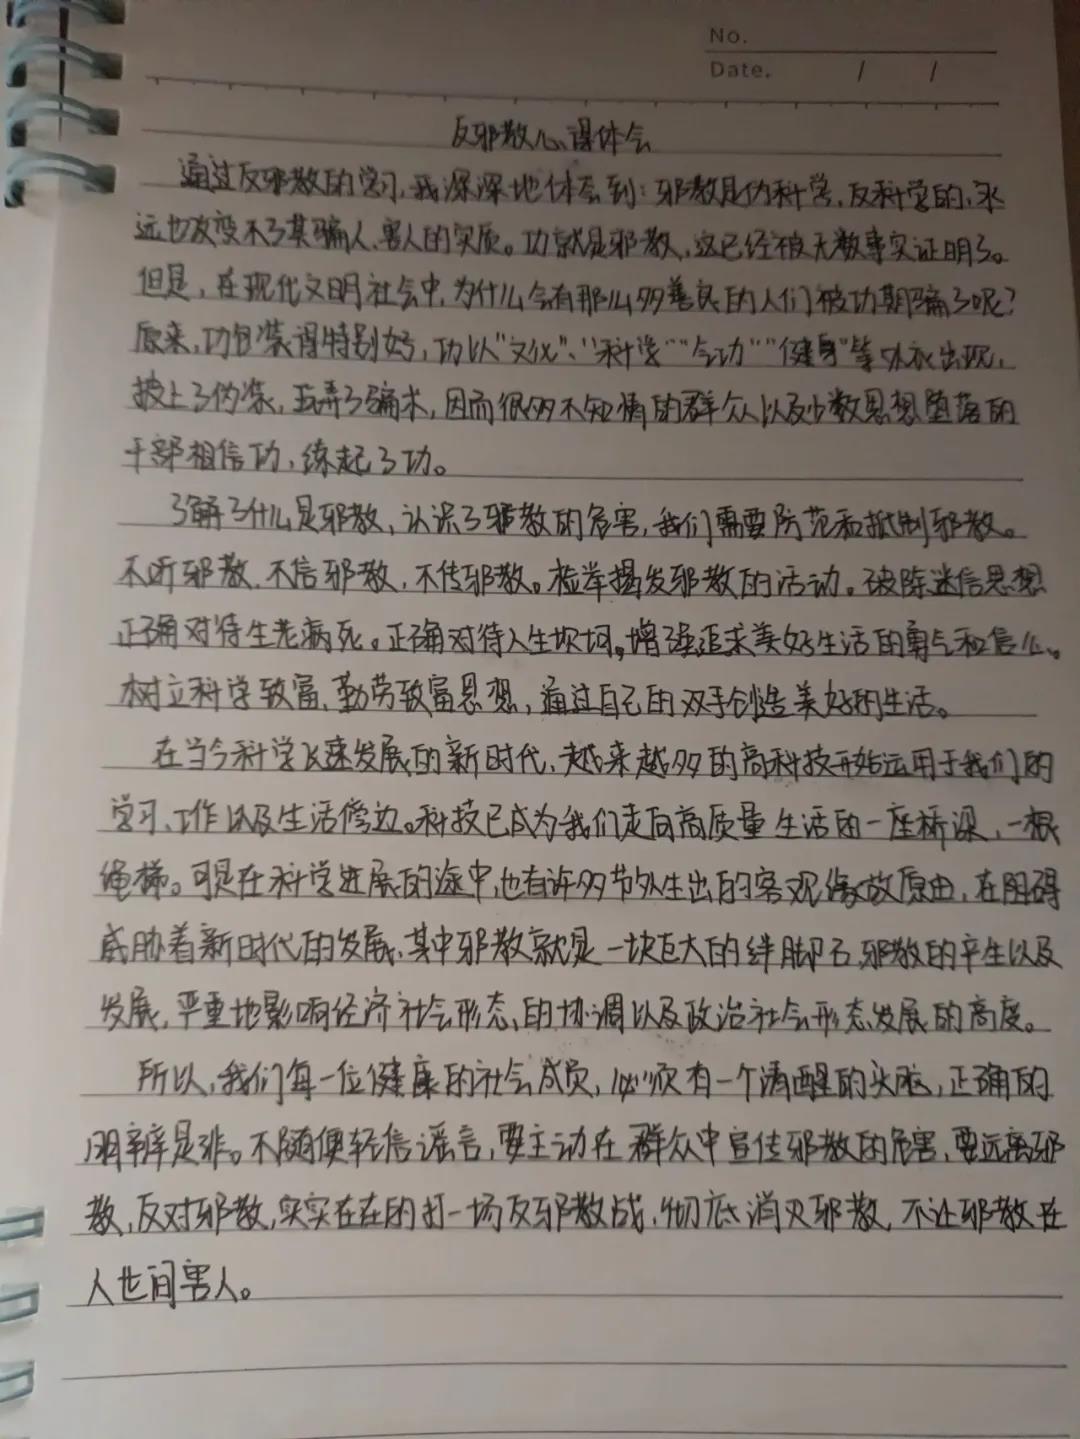 No.
Date. / /
反邪教心得体会
通过反邪教的学习,我深深地体会到:邪教是伪科学、反科学的,永
远也改变不了其骗人、害人的实质。功就是邪教,这已经被无数事实证明了。
但是,在现代文明社会中,为什么会有那么多善良的人们被功期骗了呢?
原来,功包装得特别好,功以"文化"、"科学""气功""健身"等外衣出现,
披上了伪装,玩弄了骗术,因而很多不知情的群众以及少数思想堕落的
干部相信功,练起了功。
了解了什么是邪教,认识了邪教的危害,我们需要防范和抵制邪教。
不听邪教、不信邪教、不传邪教。检举揭发邪教的活动。破除迷信思想
正确对待生老病死。正确对待人生坎坷。增强追求美好生活的勇气和信心。
树立科学致富、勤劳致富思想,通过自己的双手创造美好的生活。
在当今科学飞速发展的新时代,越来越多的高科技开始运用于我们的
学习、工作以及生活旁边。科技已成为我们走向高质量生活的一座桥梁、一根
绳梯。可是在科学进展的途中,也有许多节外生出的客观缘故原由,在阻碍
威胁着新时代的发展,其中邪教就是一块巨大的绊脚石,邪教的产生以及
发展,严重地影响经济社会形态、的协调以及政治社会形态发展的高度。
所以,我们每一位健康的社会成员,必须有一个清醒的头脑,正确的
明辨是非。不随便轻信谣言,要主动在群众中宣传邪教的危害,要远离邪
教,反对邪教,实实在在的打一场反邪教战,彻底消灭邪教,不让邪教在
人世间害人。